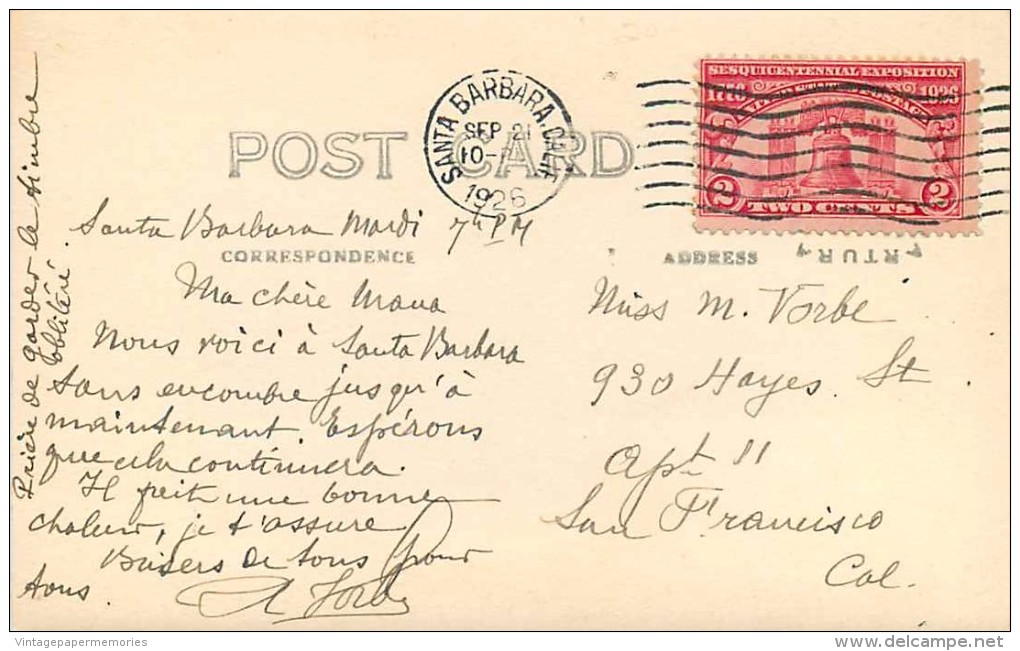 SESQUICENTENNIAL EXPOSITION
1776 1926
2 TWO CENTS 2
SANTA BARBARA, CALIF.
SEP 21
10-
1926
POST CARD
CORRESPONDENCE
ADDRESS
Santa Barbara Mardi 7h PM
Ma chère Mana
Nous voici à Santa Barbara
sans encombre jusqu'à
maintenant. Espérons
que cela continuera.
Il fait une bonne
chaleur, je t'assure
Baisers de tous pour
tous.
Prière de garder le timbre
oblitéré
Miss M. Vorbe
930 Hayes St
Apt 11
San Francisco
Cal.
Vintagepapermemories
www.delcampe.net